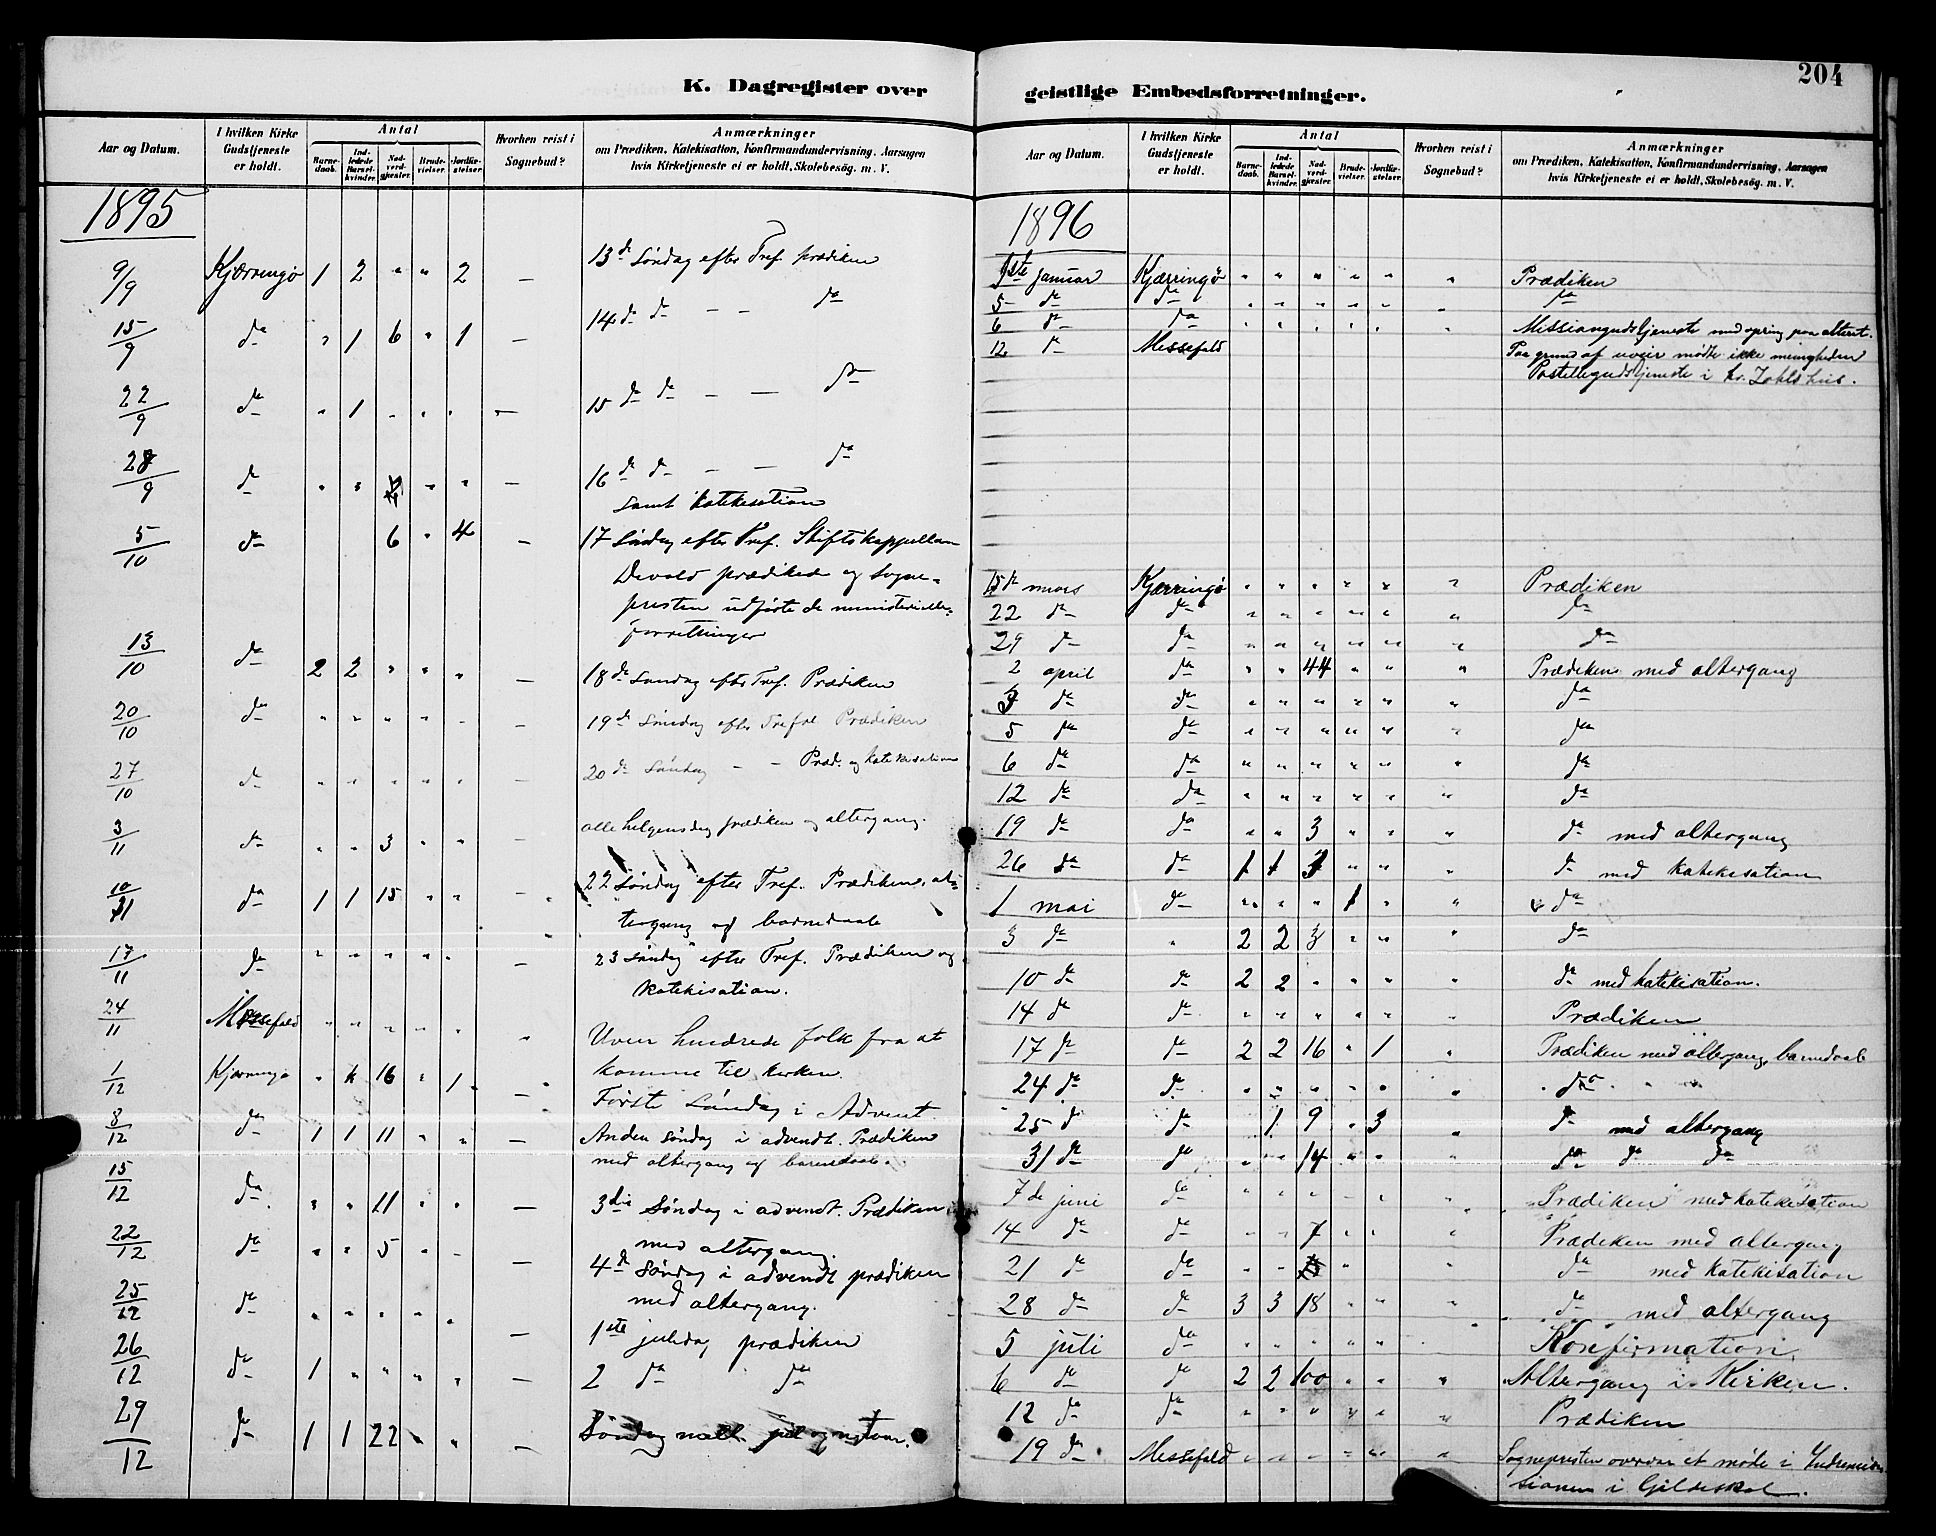 K. Dagregister over
Aar og Datum.
I hvilken Kirke Gudstjeneste er holdt.
Antal
Barne-daab.
Ind-ledede Barsel-kvinder.
Nad-verd-gjester.
Brude-vielser.
Jordfæ-stelser.
Hvorhen reist i Sognebud?
Anmærkninger
om Prædiken, Katekisation, Konfirmandundervisning, Aarsagen
hvis Kirketjeneste ei er holdt, Skolebesøg. m. V.
1895
9/9 Kjærringø 1 2 " " 2 – 13de Søndag efter Tref. prædiken
15/9 da " 1 6 " 1 – 14 de da – – da
22/9 da " 1 " " " – 15 de da – – da
28/9 da " " " " – 16 de da – – da
samt Katekisation
5/10 da 6 " 4 – 17 Søndag efter Tref. Stiftskappellan
Devold prædikede og Sogne-
presten udførte de ministerielle
forretninger
13/10 da 2 2 " " " – 18de Søndag efter Tref. Prædiken
20/10 da " " " " " – 19de Søndag efter Trefol Prædiken
27/10 da " " " " " – 20de Søndag – – Præd. og katekisation
3/11 da " " 3 " " – alle helgensdag prædiken og altergang.
10/11 da 1 1 15 " " – 22 Søndag efter Tref. Prædiken, al-
tergang og barnedaab
17/11 da " " " " " – 23 Søndag efter Tref. Prædiken og
katekisation.
24/11 Messefald " " " " " " Uveir hindrede folk fra at
komme til kirken.
1/12 Kjærringø " 16 " 1 – Første Søndag i Advent
8/12 da 1 1 11 " " – Anden søndag i advendt. Prædiken
med altergang og barnedaab.
15/12 da " " 11 " " – 3die Søndag i advendt. Prædiken
med altergang.
22/12 da " " 5 " " – 4de Søndag i advendt prædiken
med altergang.
25/12 da " " " " " – 1ste juledag prædiken
26/12 da 1 " " " " – 2 da da
29/12 da 1 1 22 " " – Søndag mell. jul og nytaar.
204
geistlige Embedsforretninger.
Aar og Datum.
I hvilken Kirke Gudstjeneste er holdt.
Antal
Barne-daab.
Ind-ledede Barsel-kvinder.
Nad-verd-gjester.
Brude-vielser.
Jordfæ-stelser.
Hvorhen reist i Sognebud?
Anmærkninger
om Prædiken, Katekisation, Konfirmandundervisning, Aarsagen
hvis Kirketjeneste ei er holdt, Skolebesøg. m. V.
1896
1ste januar Kjærringø " " " " " " Prædiken
5 da da " " " " " " da
6 da da " " " " " " Missionsgudstjeneste med ofring paa alteret.
12 da Messefald Paa grund af uveir mødte ikke menigheden
Postillegudstjeneste i hr. Zahls hus.
15de mars Kjærringø " " " " " " Prædiken
22 da da " " " " " " da
29 da da " " " " " " da
2 april da " " 44 " " " Prædiken med altergang
3 da da " " " " " " da
5 da da " " " " " " da
6 da da " " " " " " da
12 da da " " " " " " da
19 da da " " 3 " " " da med altergang
26 da da 1 1 " " " da med katekisation
1 mai da " " " 1 " " da
3 da " 2 2 3 " " " da
10 da da 2 2 " " " " da med katekisation.
14 da da " " " " " " Prædiken
17 da da 2 2 16 " 1 " Prædiken med altergang, barnedaab
24 da da " " " " " " da
25 da da 1 9 " 3 " da med altergang
31 da da " " 14 " " " da da da
7de juni da " " " " " " Prædiken med katekisation
14 da da " " 7 " " " Prædiken med altergang
21 da da " " " " da med katekisation
28 da da 3 3 18 " " " da med altergang
5 juli da " " " " " Konfirmation.
6 da da 2 2 100 " " " Altergang i Kirken.
12 da da " " " " " " Prædiken
19 da Messefald " " " " " " Sognepresten overvar et møde i Indremis-
sionen i Gildeskal.